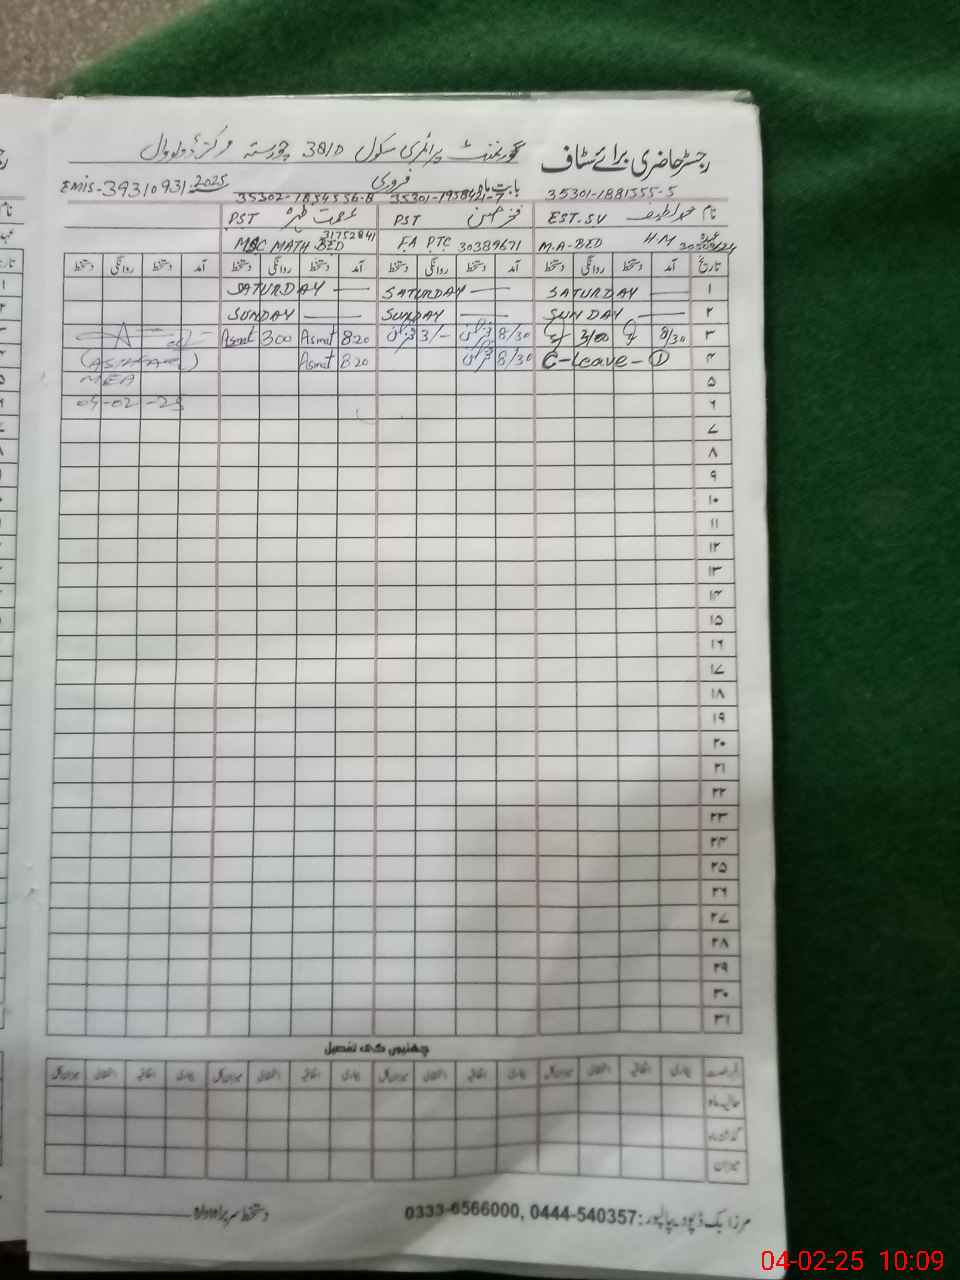 رجسٹر حاضری برائے سٹاف
گورنمنٹ پرائمری سکول 38/D چورستہ مرکز
بابت ماہ فروری 2025 EMIS-39310931
35301-1881355-5 35301-1958421-7 35302-1854556-8
نام محمد لطیف EST.SV PST عصمت PST
عہدہ HM M.A-BED 30389671 F.A PTC 31752841 MSC MATH BED
تاریخ آمد دستخط روانگی دستخط آمد دستخط روانگی دستخط آمد دستخط روانگی دستخط آمد دستخط روانگی دستخط
۱ SATURDAY SATURDAY SATURDAY
۲ SUNDAY SUNDAY SUNDAY
۳ 8/30 3/00 8/30 3/- 820 Asmat 300 Asmat
۴ C-Leave-① 8/30 820 Asmat
(ASHFAQ)
۵ MEA
۶ 04-02-25
۷
۸
۹
۱۰
۱۱
۱۲
۱۳
۱۴
۱۵
۱۶
۱۷
۱۸
۱۹
۲۰
۲۱
۲۲
۲۳
۲۴
۲۵
۲۶
۲۷
۲۸
۲۹
۳۰
۳۱
چھٹیوں کی تفصیل
قسم رخصت بیماری اتفاقیہ استحقاقی میزان کل بیماری اتفاقیہ استحقاقی میزان کل بیماری اتفاقیہ استحقاقی میزان کل بیماری اتفاقیہ استحقاقی میزان کل
حالیہ ماہ
گذشتہ ماہ
میزان
مرزا بک ڈپو دیپالپور: 0444-540357, 0333-6566000 دستخط سربراہ ادارہ
04-02-25 10:09